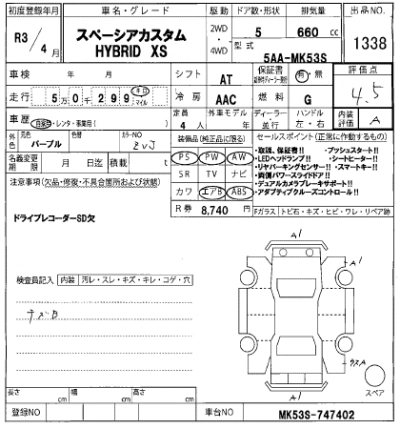 初度登録年月 車名・グレード 駆動 ドア数・形状 排気量 出品NO.
R3/4月 スペーシアカスタム HYBRID XS 2WD ・ 4WD 5 660 cc 1338
型式 5AA-MK53S
車検 年 月 シフト AT 保証書 有・無 評価点
走行 5万0千299 キロ マイル 冷房 AAC 燃料 G 4.5
車歴 自家用・レンタ・事業用( ) 定員 4人 外車モデル 年 ディーラー ・ 並行 ハンドル 左・右 内装評価 A
外色 パープル カラーNO ZVJ 装備品(純正品に限る) セールスポイント(正常に作動するもの)
名義変更期限 月 日迄 積載 t PS PW AW
SR TV ナビ
カワ エアB ABS
・取説、保証書!! ・プッシュスタート!!
・LEDヘッドランプ!! ・シートヒーター!!
・リヤパーキングセンサー!! ・スマートキー!!
・両側パワースライドドア!!
・デュアルカメラブレーキサポート!!
・アダプティブクルーズコントロール!!
注意事項(欠品・修復・不具合箇所および状態)
R券 8,740 円 Fガラス トビ石・キズ・ヒビ・ワレ・リペア跡
ドライブレコーダーSD欠
検査員記入 内装 汚レ・スレ・キズ・キレ・コゲ・穴
ナメB
A1
A1
A1
スペア
長さ cm 幅 cm 高さ cm
登録NO 車台NO MK53S-747402